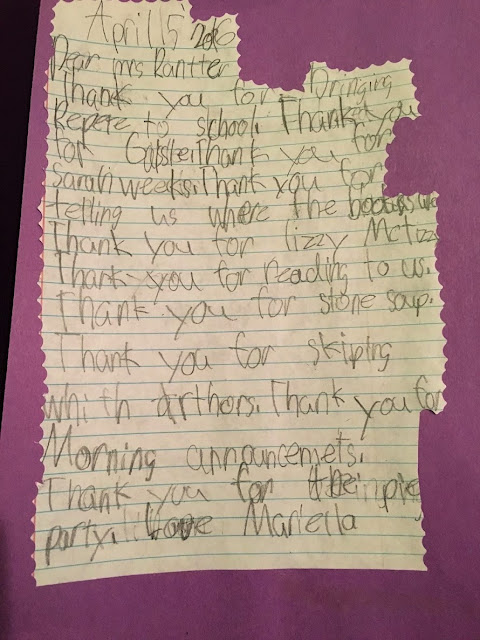 April 5 2016
Dear mrs Rantter
Thank you for bringing
Repere to school. Thank you
for Thank you for
sarah weeks. Thank you for
telling us where the
Thank you for lizzy Mctizz
Thank you for reading to us.
Thank you for stone soup.
Thank you for skiping
whith arthors. Thank you for
Morning announcemets.
Thank you for the pie
party. love Mariella